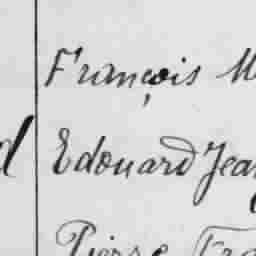 François
Edouard Jean
Pierre